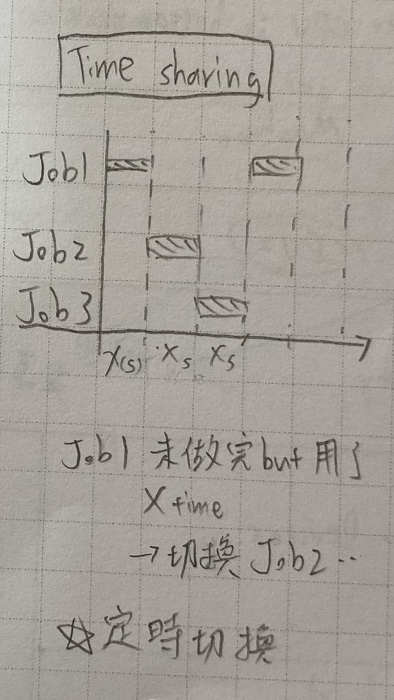 Time sharing
Job1
Job2
Job3
X(s) Xs Xs
Job1 未做完but用了
X time
→切換 Job2 ..
☆定時切換